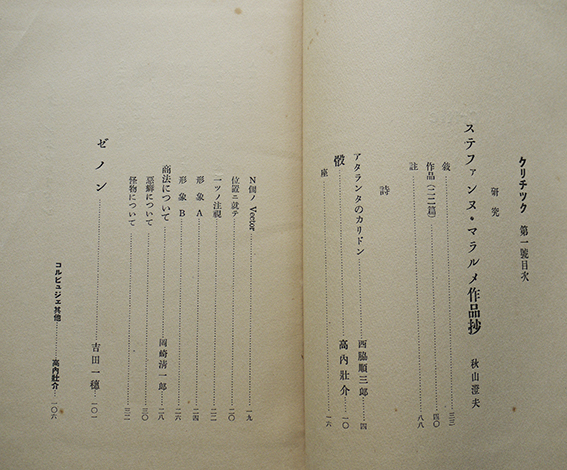 クリチック 第一號目次
研究
ステファンヌ・マラルメ作品抄 秋山澄夫
敍 三三
作品(二二篇) 四〇
註 八八
詩
アタランタのカリドン 西脇順三郎 四
骰 高內壯介 一〇
座 一六
N個ノ Vector 一九
位置ニ就テ 二〇
一ツノ注視 二二
形象A 二四
形象B 二六
商法について 岡崎淸一郎 二八
惡癖について 三〇
怪物について 三二
ゼノン 吉田一穗 一〇一
コルビュジェ其他 高內壯介 一〇六